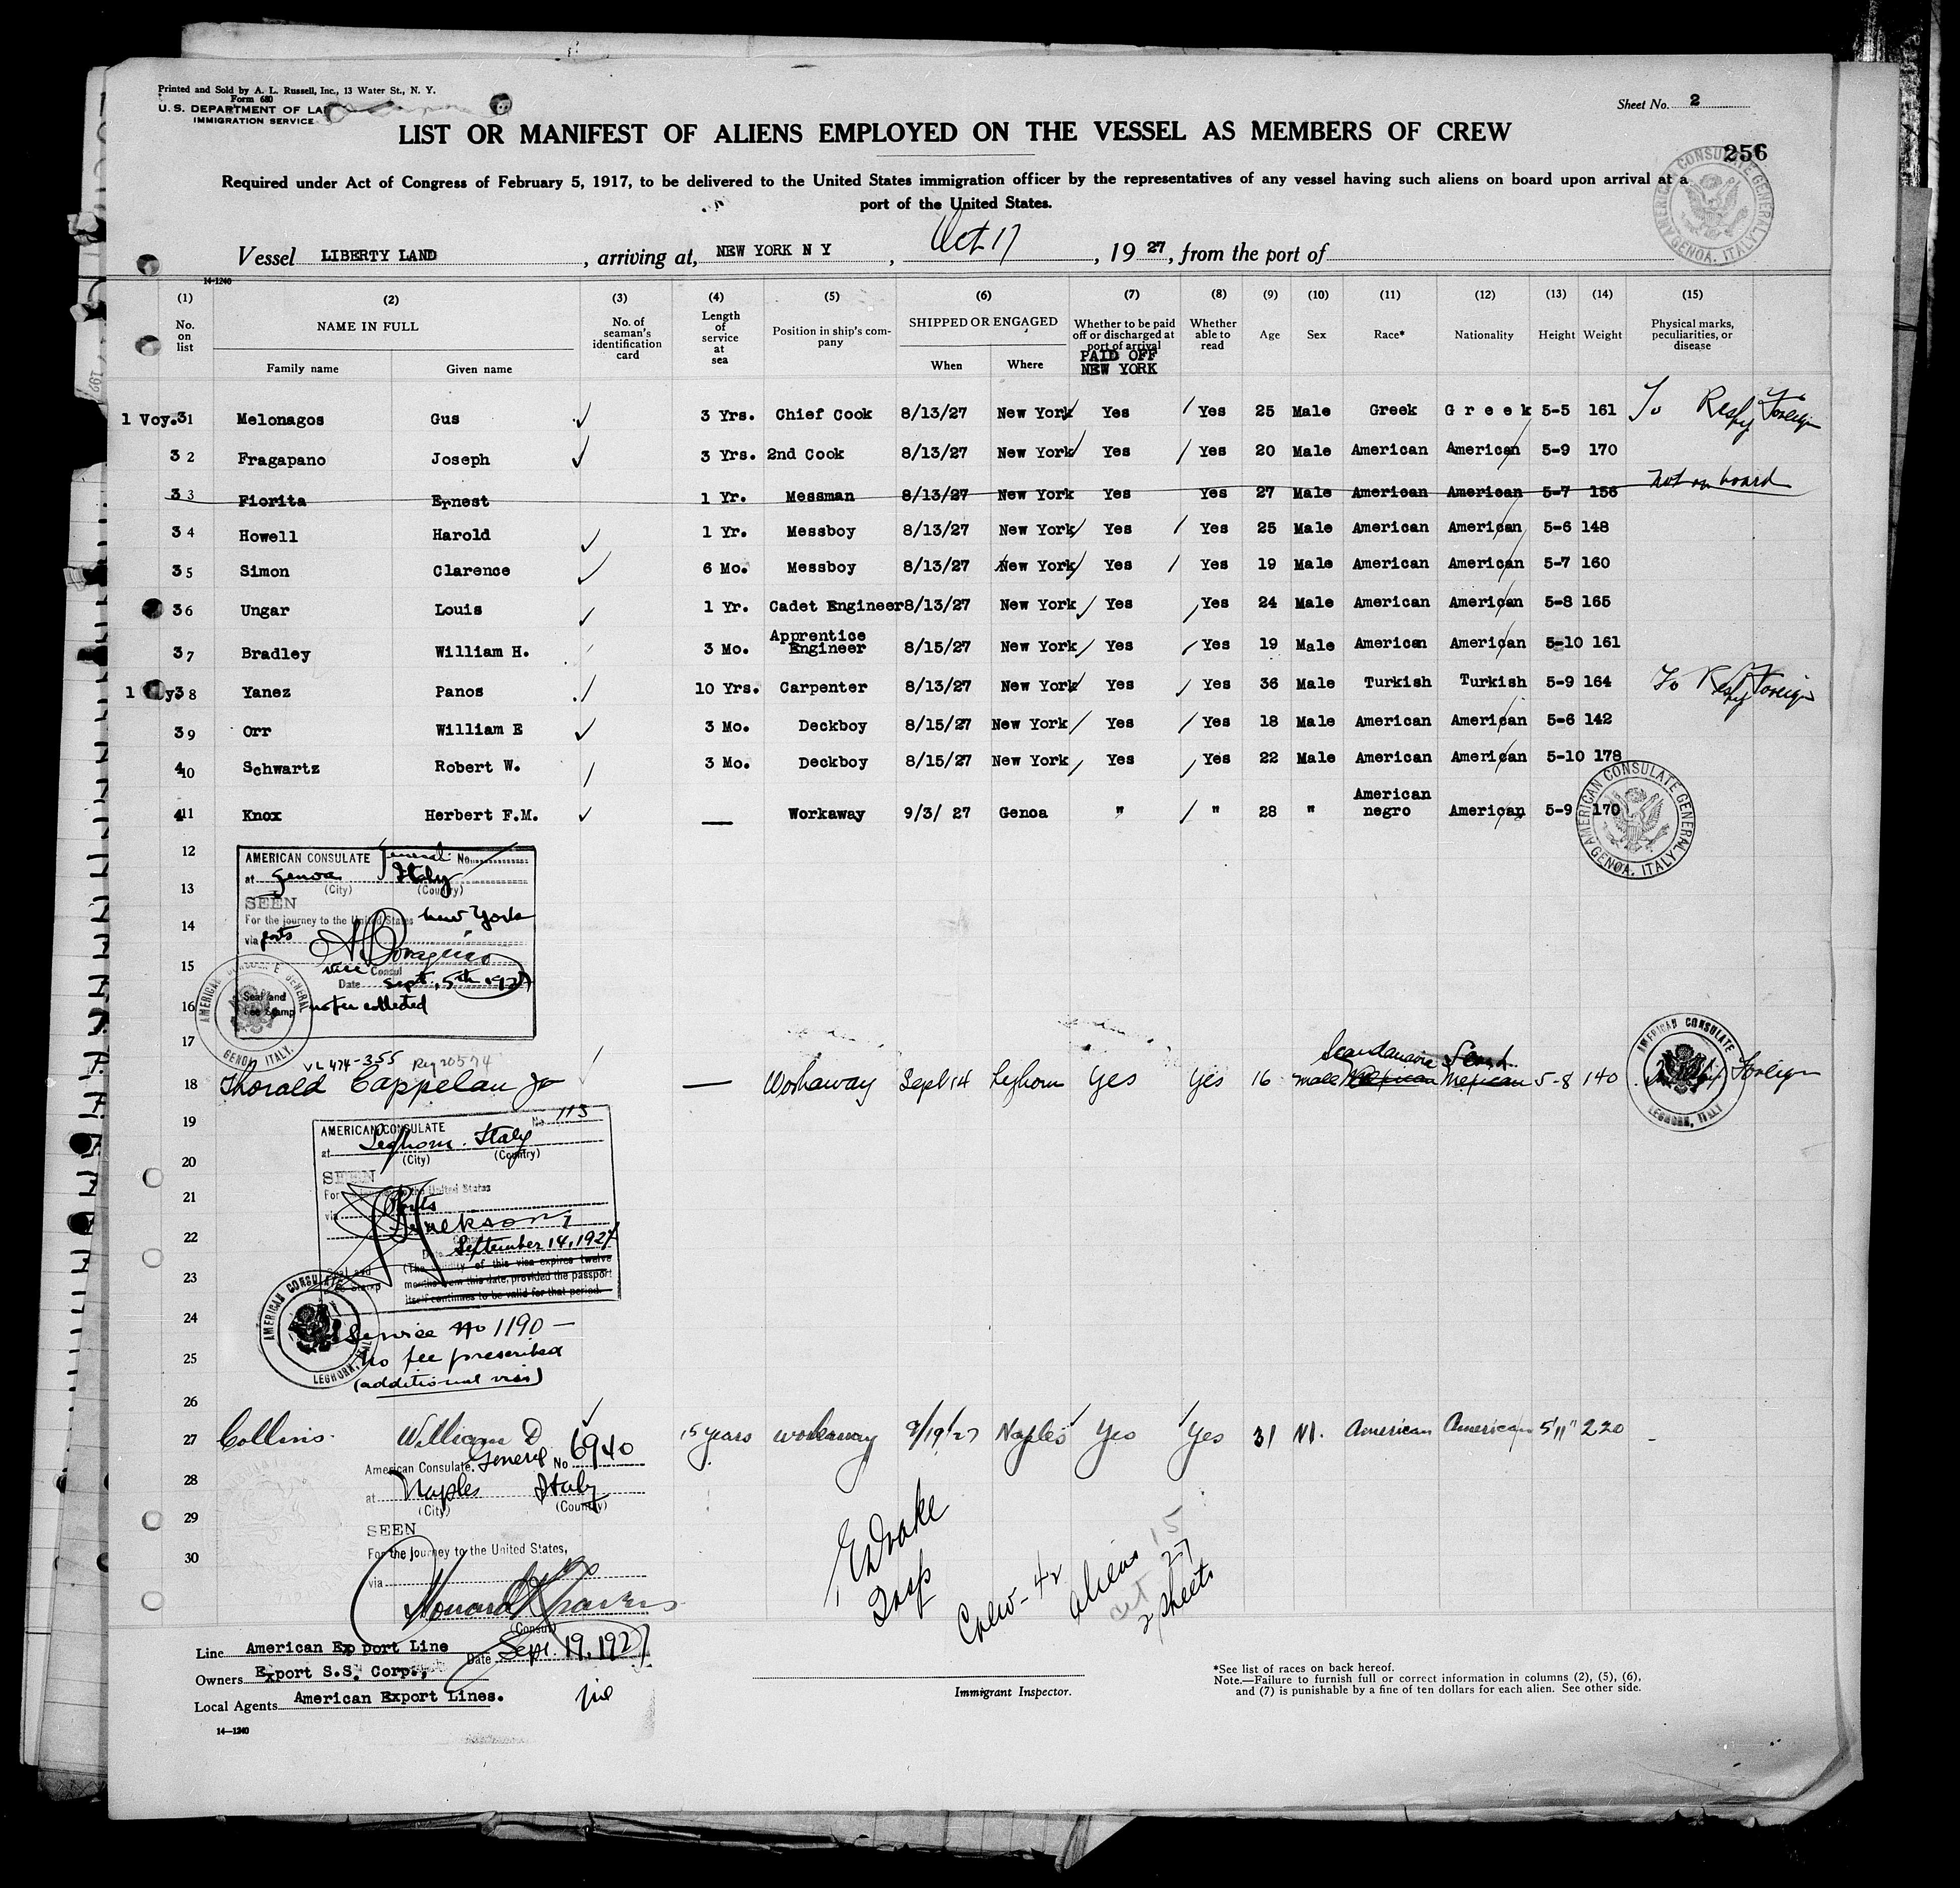 Printed and Sold by A. L. Russell, Inc., 13 Water St., N. Y.
Form 680
U. S. DEPARTMENT OF LA
IMMIGRATION SERVICE
Sheet No. 2
LIST OR MANIFEST OF ALIENS EMPLOYED ON THE VESSEL AS MEMBERS OF CREW
256
Required under Act of Congress of February 5, 1917, to be delivered to the United States immigration officer by the representatives of any vessel having such aliens on board upon arrival at a
port of the United States.
AMERICAN CONSULATE GENERAL GENOA, ITALY.
Vessel LIBERTY LAND, arriving at, NEW YORK N Y, Oct 17, 1927, from the port of
14-1240
(1) (2) (3) (4) (5) (6) (7) (8) (9) (10) (11) (12) (13) (14) (15)
No. on list
NAME IN FULL
Family name Given name
No. of seaman's identification card
Length of service at sea
Position in ship's company
SHIPPED OR ENGAGED
When Where
Whether to be paid off or discharged at port of arrival
PAID OFF
NEW YORK
Whether able to read
Age Sex Race* Nationality Height Weight
Physical marks, peculiarities, or disease
1 Voy. 31 Melonagos Gus 3 Yrs. Chief Cook 8/13/27 New York Yes Yes 25 Male Greek Greek 5-5 161 To Reship Foreign
32 Fragapano Joseph 3 Yrs. 2nd Cook 8/13/27 New York Yes Yes 20 Male American American 5-9 170
33 Fiorita Ernest 1 Yr. Messman 8/13/27 New York Yes Yes 27 Male American American 5-7 156 not on board
34 Howell Harold 1 Yr. Messboy 8/13/27 New York Yes Yes 25 Male American American 5-6 148
35 Simon Clarence 6 Mo. Messboy 8/13/27 New York Yes Yes 19 Male American American 5-7 160
36 Ungar Louis 1 Yr. Cadet Engineer 8/13/27 New York Yes Yes 24 Male American American 5-8 165
37 Bradley William H. 3 Mo. Apprentice Engineer 8/15/27 New York Yes Yes 19 Male American American 5-10 161
1 y 38 Yanez Panos 10 Yrs. Carpenter 8/13/27 New York Yes Yes 36 Male Turkish Turkish 5-9 164 To Reship Foreign
39 Orr William E 3 Mo. Deckboy 8/15/27 New York Yes Yes 18 Male American American 5-6 142
410 Schwartz Robert W. 3 Mo. Deckboy 8/15/27 New York Yes Yes 22 Male American American 5-10 178
411 Knox Herbert F.M. — Workaway 9/3/ 27 Genoa " " 28 " American negro American 5-9 170
AMERICAN CONSULATE GENERAL GENOA, ITALY.
12
13
14
15
16
17
AMERICAN CONSULATE General No.
at Genoa Italy
(City) (Country)
SEEN
For the journey to the United States New York
via ports
vice Consul
Date Sept. 5th 1927
Seal and Fee Stamp no fee collected
AMERICAN CONSULATE GENERAL GENOA ITALY.
VL 474-355 Reg 20574
18 Thorald Cappelan Jr — Workaway Sept 14 Leghorn Yes Yes 16 male Scandanavia Mexican Scand. Mexican 5-8 140 Foreign
AMERICAN CONSULATE LEGHORN, ITALY
19
20
21
22
23
24
25
26
AMERICAN CONSULATE No. 113
at Leghorn. Italy
(City) (Country)
SEEN
For the United States
via Ports
Date September 14, 1927
(The validity of this visa expires twelve
months from this date, provided the passport
itself continues to be valid for that period.
Seal and Fee Stamp
AMERICAN CONSULATE LEGHORN, ITALY
Service No 1190 —
No fee prescribed
(additional visa)
27 Collins. William D 15 years workaway 9/19/27 Naples Yes Yes 31 M. American American 5'11" 220 -
28
29
30
American Consulate General No 6940
at Naples Italy
(City) (Country)
SEEN
For the journey to the United States,
via
(Consul)
Date Sept. 19, 1927
E Drake
Insp
Crew - 42
aliens 15
27
2 sheets
Line American Export Line
Owners Export S.S. Corp.,
Local Agents American Export Lines.
14—1240
Immigrant Inspector.
*See list of races on back hereof.
Note.—Failure to furnish full or correct information in columns (2), (5), (6),
and (7) is punishable by a fine of ten dollars for each alien. See other side.